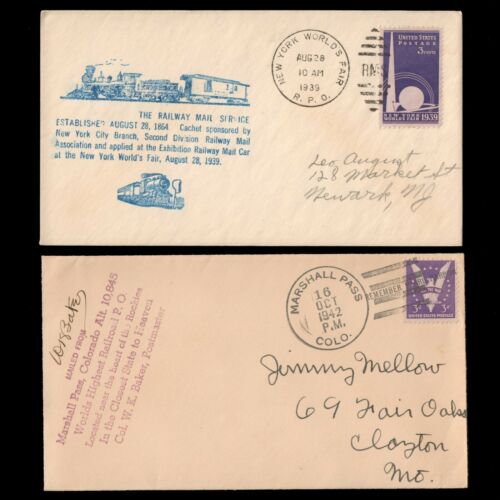 NEW YORK WORLD'S FAIR
AUG 28
10 AM
1939
R.P.O.
RMS
UNITED STATES
POSTAGE
3 CENTS
NEW YORK
1939
THE RAILWAY MAIL SERVICE
ESTABLISHED AUGUST 28, 1864. Cachet sponsored by
New York City Branch, Second Division Railway Mail
Association and applied at the Exhibition Railway Mail Car
at the New York World's Fair, August 28, 1939.
Leo August
128 Market St
Newark, NJ
MARSHALL PASS
16
OCT
1942
P.M.
COLO.
REMEMBER
3¢ 3¢
UNITED STATES POSTAGE
MAILED FROM
Marshall Pass, Colorado Alt. 10,845
Worlds Highest Railroad P. O.
Located near the heart of the Rockies
In the Closest State to Heaven
Col. W. K. Baker, Postmaster
Jimmy Mellow
69 Fair Oaks
Clayton
Mo.